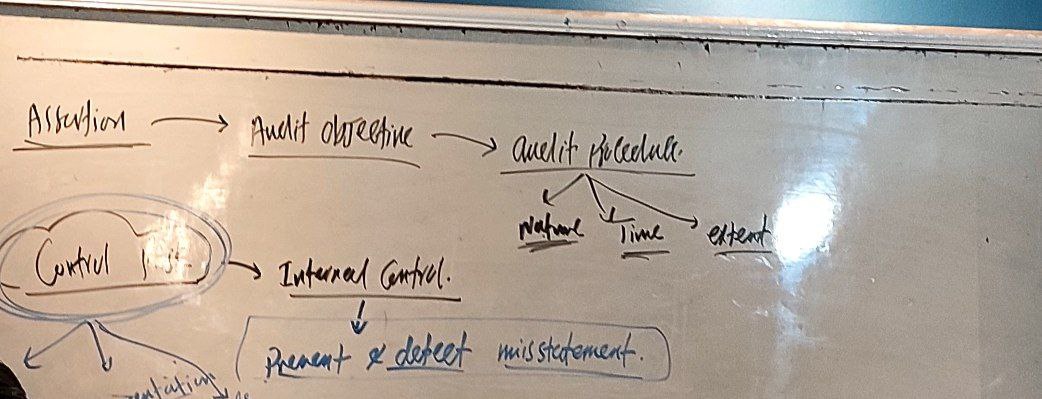 Assertion → Audit objective → audit procedure.
Nature Time extent
Control → Internal Control.
Prevent & detect misstatement.